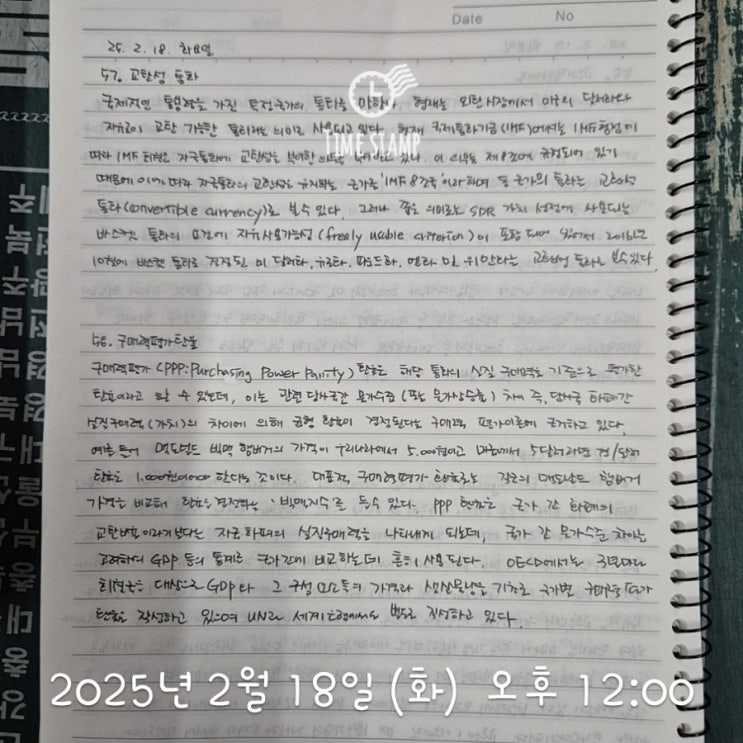 Date No
25. 2. 18. 화요일
57. 교환성 통화
국제적인 통용력을 가진 특정국가의 통화를 말한다. 현재는 외환시장에서 미국의 달러화와
자유로이 교환 가능한 통화라는 의미로 사용되고 있다. 현재 국제통화기금(IMF)에서는 IMF협정에
TIME STAMP
따라 IMF 회원국 자국통화에 교환성을 부여할 의무를 있다. 이 의무는 제8조에 규정되어 있기
때문에 이에 따라 자국통화의 교환성을 유지하는 국가를 'IMF 8조국'이라하며 동 국가의 통화는 교환성
통화(convertible currency)로 볼 수 있다. 그러나 좁은 의미로는 SDR 가치 산정에 사용되는
바스켓 통화의 요건에 자유사용가능성(freely usable criterion)이 포함되어 있어서 2016년
10월에 바스켓 통화로 결정된 미 달러화, 유로화, 파운드화, 엔화 및 위안화는 교환성 통화라 볼 수 있다.
58. 구매력평가환율
구매력평가(PPP:Purchasing Power Parity) 환율은 해당 통화의 실질 구매력을 기준으로 평가한
환율이라고 할 수 있는데, 이는 관련 당사국간 물가수준(또는 물가상승률) 차이 즉, 당사국 화폐간
실질구매력(가치)의 차이에 의해 균형 환율이 결정된다는 구매력 평가이론에 근거하고 있다.
예를 들어 맥도널드 빅맥 햄버거의 가격이 우리나라에서 5,000원이고 미국에서 5달러라면 원/달러
환율은 1,000원이어야 한다는 것이다. 대표적 구매력평가 환율로는 각국의 맥도날드 햄버거
가격을 비교해 환율을 결정하는 '빅맥지수'를 들 수 있다. PPP 환율은 국가 간 화폐의
교환비율이라기보다는 자국화폐의 실질구매력을 나타내게 되는데, 국가 간 물가수준 차이를
고려하여 GDP 등의 통계를 국가간에 비교하는데 흔히 사용된다. OECD에서는 3년마다
회원국을 대상으로 GDP와 그 구성 요소들의 가격과 생산물량을 기초로 국가별 구매력평가
환율을 작성하고 있으며 UN과 세계은행에서도 별도로 작성하고 있다.
2025년 2월 18일 (화) 오후 12:00